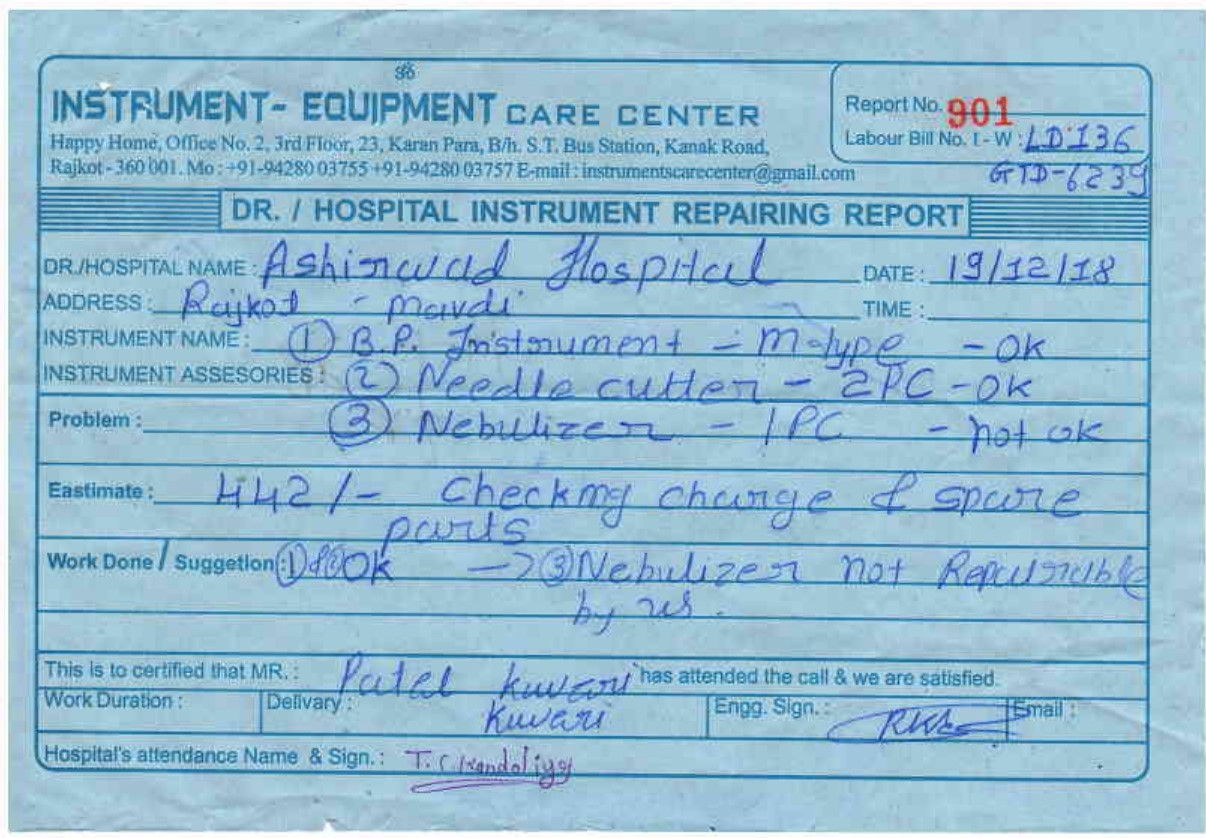 INSTRUMENT- EQUIPMENT CARE CENTER
Happy Home, Office No. 2, 3rd Floor, 23, Karan Para, B/h. S.T. Bus Station, Kanak Road,
Rajkot - 360 001. Mo : +91-94280 03755 +91-94280 03757 E-mail : instrumentscarecenter@gmail.com
Report No. 901
Labour Bill No. I - W : LD136
GTD-6239
DR. / HOSPITAL INSTRUMENT REPAIRING REPORT
DR./HOSPITAL NAME : Ashirwad Hospital DATE : 19/12/18
ADDRESS : Rajkot - mavdi TIME :
INSTRUMENT NAME : ① B.P. Instrument - M-type - Ok
INSTRUMENT ASSESORIES : ② Needle cutter - 2PC - Ok
Problem : ③ Nebulizer - 1PC - not ok
Eastimate : 442/- Checking charge & spare
parts
Work Done / Suggetion : ① Ok → ③ Nebulizer not Repairable
by us.
This is to certified that MR. : Patel Kuvari has attended the call & we are satisfied.
Work Duration : Delivary : Kuvari Engg. Sign. : Email :
Hospital's attendance Name & Sign. : T. C. Kandoliya